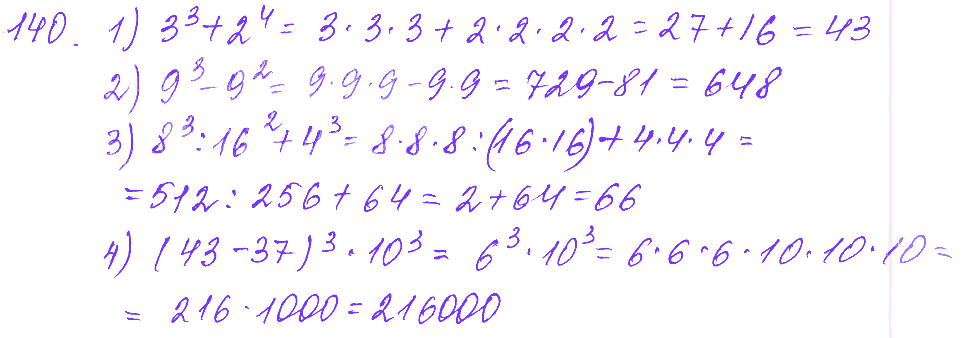 140. 1) 3³+2⁴= 3·3·3+2·2·2·2=27+16=43
2) 9³-9²= 9·9·9-9·9=729-81=648
3) 8³:16²+4³=8·8·8:(16·16)+4·4·4=
=512:256+64=2+64=66
4) (43-37)³·10³= 6³·10³=6·6·6·10·10·10=
= 216·1000=216000